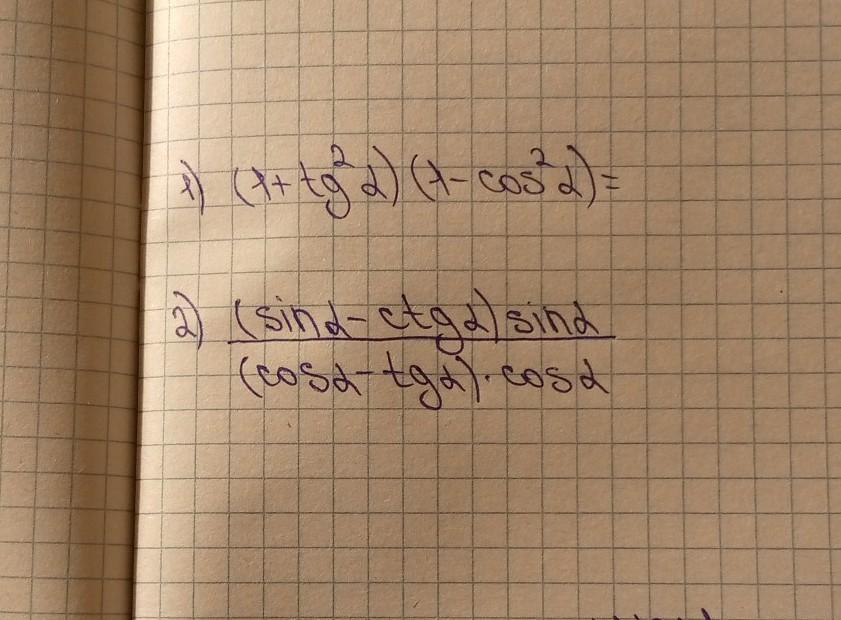 1) (1+tg²α)(1-cos²α)=
2) (sinα-ctgα)sinα
(cosα-tgα)·cosα